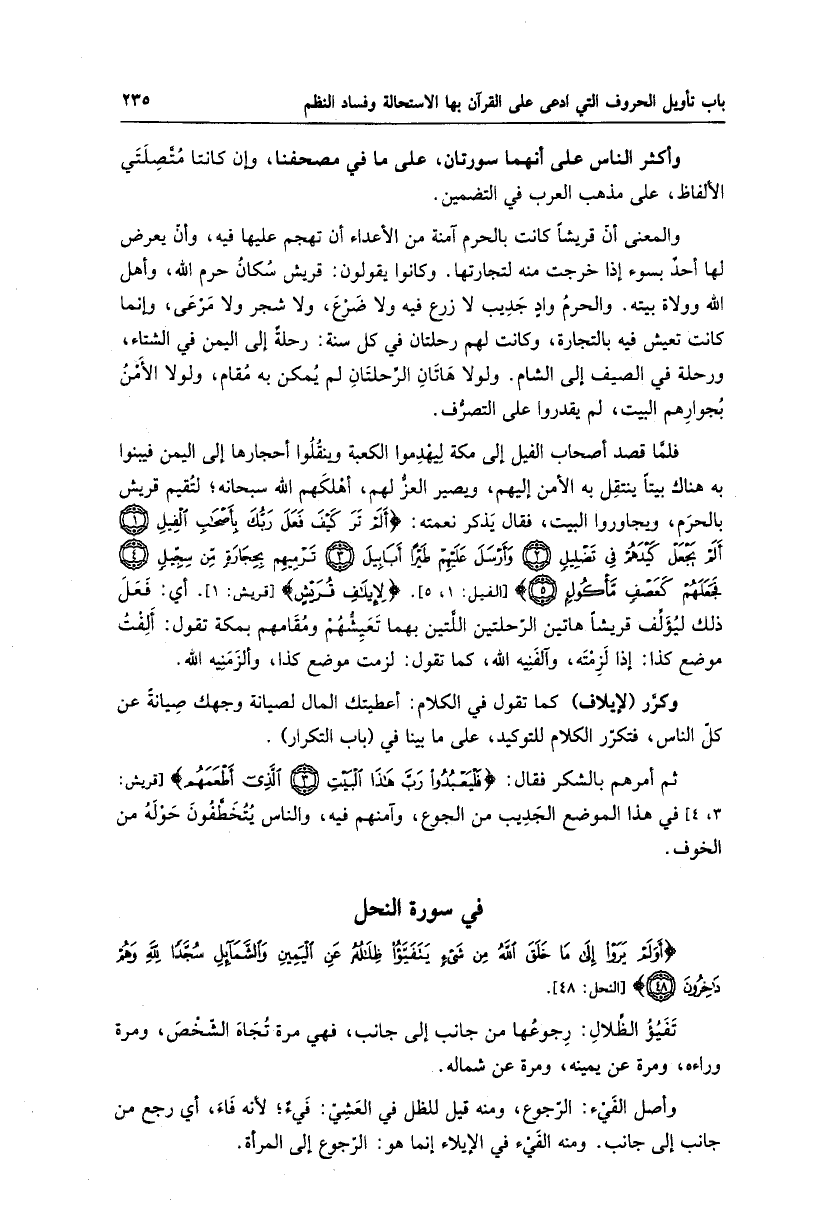 باب تأويل الحروف التي ادعى على القرآن بها الاستحالة وفساد النظم ٢٣٥
وأكثر الناس على أنهما سورتان، على ما في مصحفنا، وإن كانتا مُتَّصِلَتَي
الألفاظ، على مذهب العرب في التضمين.
والمعنى أنّ قريشاً كانت بالحرم آمنة من الأعداء أن تهجم عليها فيه، وأنْ يعرض
لها أحدٌ بسوء إذا خرجت منه لتجارتها. وكانوا يقولون: قريش سُكانُ حرم الله، وأهل
الله وولاة بيته. والحرمُ وادٍ جَدِيب لا زرع فيه ولا ضَرْعَ، ولا شجر ولا مَرْعَى، وإنما
كانت تعيش فيه بالتجارة، وكانت لهم رحلتان في كل سنة: رحلةً إلى اليمن في الشتاء،
ورحلة في الصيف إلى الشام. ولولا هَاتَانِ الرِّحلتَانِ لم يُمكن به مُقام، ولولا الأَمْنُ
بُجوارِهم البيت، لم يقدروا على التصرُّف.
فلمَّا قصد أصحاب الفيل إلى مكة لِيهْدِموا الكعبة وينقُلُوا أحجارها إلى اليمن فيبنوا
به هناك بيتاً ينتقِل به الأمن إليهم، ويصير العزُّ لهم، أهْلكَهم الله سبحانه؛ لتُقيم قريش
بالحرَم، ويجاوروا البيت، فقال يَذكر نعمته: ﴿أَلَمْ تَرَ كَيْفَ فَعَلَ رَبُّكَ بِأَصْحَٰبِ ٱلْفِيلِ ١
أَلَمْ يَجْعَلْ كَيْدَهُمْ فِي تَضْلِيلٍ ٢ وَأَرْسَلَ عَلَيْهِمْ طَيْرًا أَبَابِيلَ ٣ تَرْمِيهِم بِحِجَارَةٍ مِّن سِجِّيلٍ ٤
فَجَعَلَهُمْ كَعَصْفٍ مَّأْكُولٍ ٥﴾ [الفيل: ١، ٥]. ﴿لِإِيلَافِ قُرَيْشٍ﴾ [قريش: ١]. أي: فَعَلَ
ذلك ليُؤَلِّف قريشاً هاتين الرّحلتين اللَّتين بهما تَعَيشُهُمْ ومُقَامهم بمكة تقول: أَلِفْتُ
موضع كذا: إذا لَزِمْتَه، وآلفَنِيه الله، كما تقول: لزمت موضع كذا، وألزَمَنِيه الله.
وكرَّر (لإيلاف) كما تقول في الكلام: أعطيتك المال لصيانة وجهك صِيانةً عن
كلّ الناس، فتكرّر الكلام للتوكيد، على ما بينا في (باب التكرار) .
ثم أمرهم بالشكر فقال: ﴿فَلْيَعْبُدُوا۟ رَبَّ هَٰذَا ٱلْبَيْتِ ٣ ٱلَّذِىٓ أَطْعَمَهُم﴾ [قريش:
٣، ٤] في هذا الموضع الجَدِيب من الجوع، وآمنهم فيه، والناس يُتُخَطَّفُونَ حَوْلَهُ من
الخوف.
في سورة النحل
﴿أَوَلَمْ يَرَوْا۟ إِلَىٰ مَا خَلَقَ ٱللَّهُ مِن شَىْءٍ يَتَفَيَّؤُا۟ ظِلَٰلُهُۥ عَنِ ٱلْيَمِينِ وَٱلشَّمَآئِلِ سُجَّدًا لِّلَّهِ وَهُمْ
دَٰخِرُونَ ٤٨﴾ [النحل: ٤٨].
تَفَيُؤُ الظِّلالِ: رِجوعُها من جانب إلى جانب، فهي مرة تُجَاهَ الشّخْصَ، ومرة
وراءه، ومرة عن يمينه، ومرة عن شماله.
وأصل الفَيْء: الرّجوع، ومنه قيل للظل في العَشِيْ: فَيءٌ؛ لأنه فَاءَ، أي رجع من
جانب إلى جانب. ومنه الفَيْء في الإيلاء إنما هو: الرّجوع إلى المرأة.